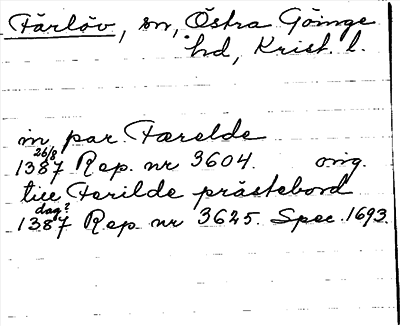 Färlöv, sn, Östra Göinge
hd, Krist. l.
in par. Færelde
26/8
1387 Rep. nr 3604. orig.
till Ferilde prästebord
dag?
1387 Rep. nr 3625. Spec. 1693.